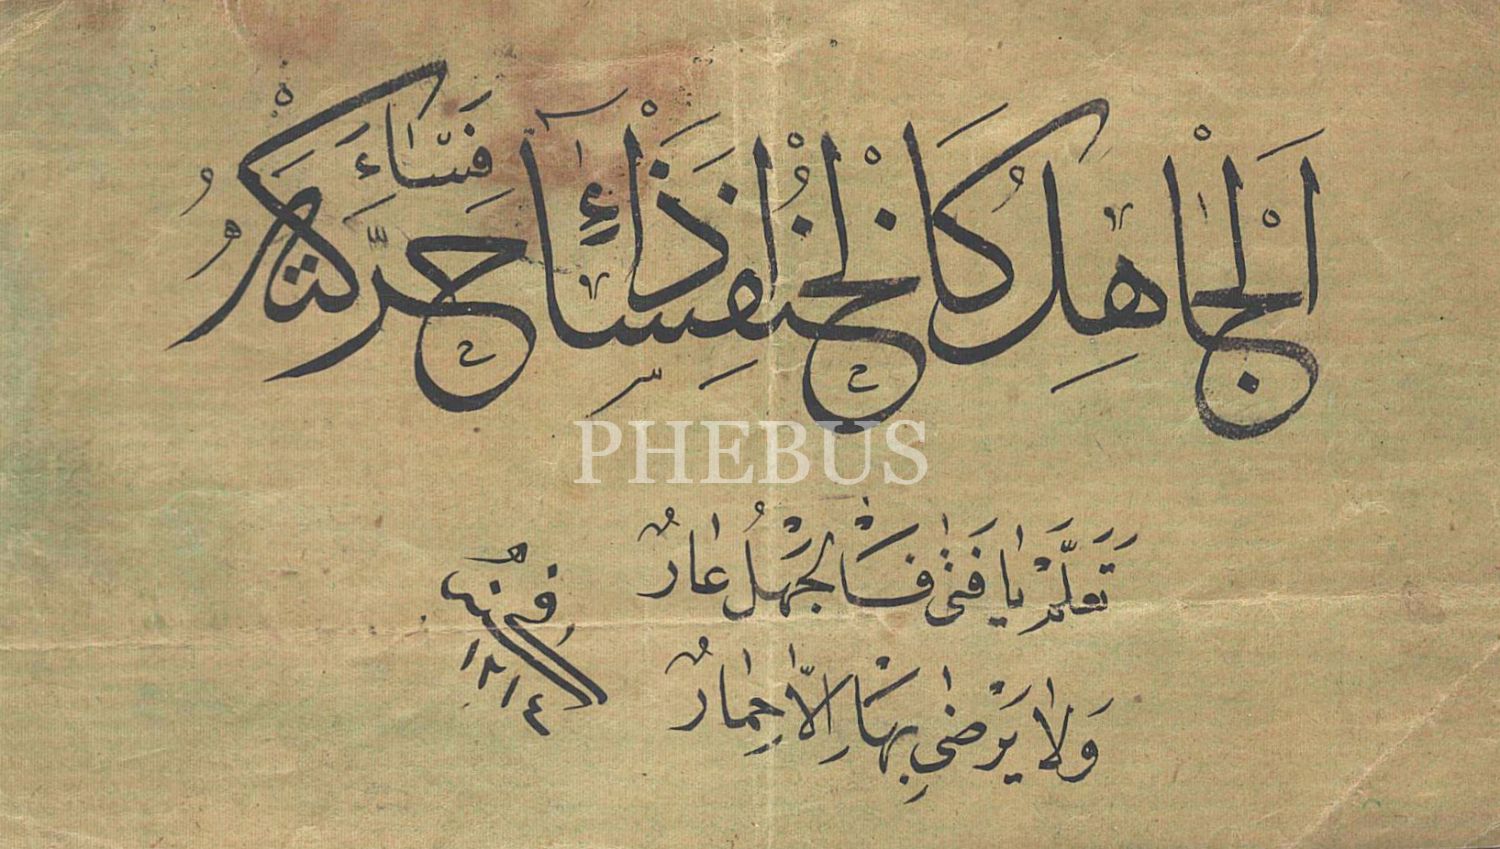 اَلْجَاهِلُ كَالْخُنْفِسَآءِ إِذَا حَرَّكْتَهُ فَسَاءَ
PHEBUS
تَعَلَّمْ يَا فَتٰى فَالْجَهْلُ عَارٌ
وَلَا يَرْضٰى بِهَا اِلَّا حِمَارٌ
فى سنة
١٢١٤